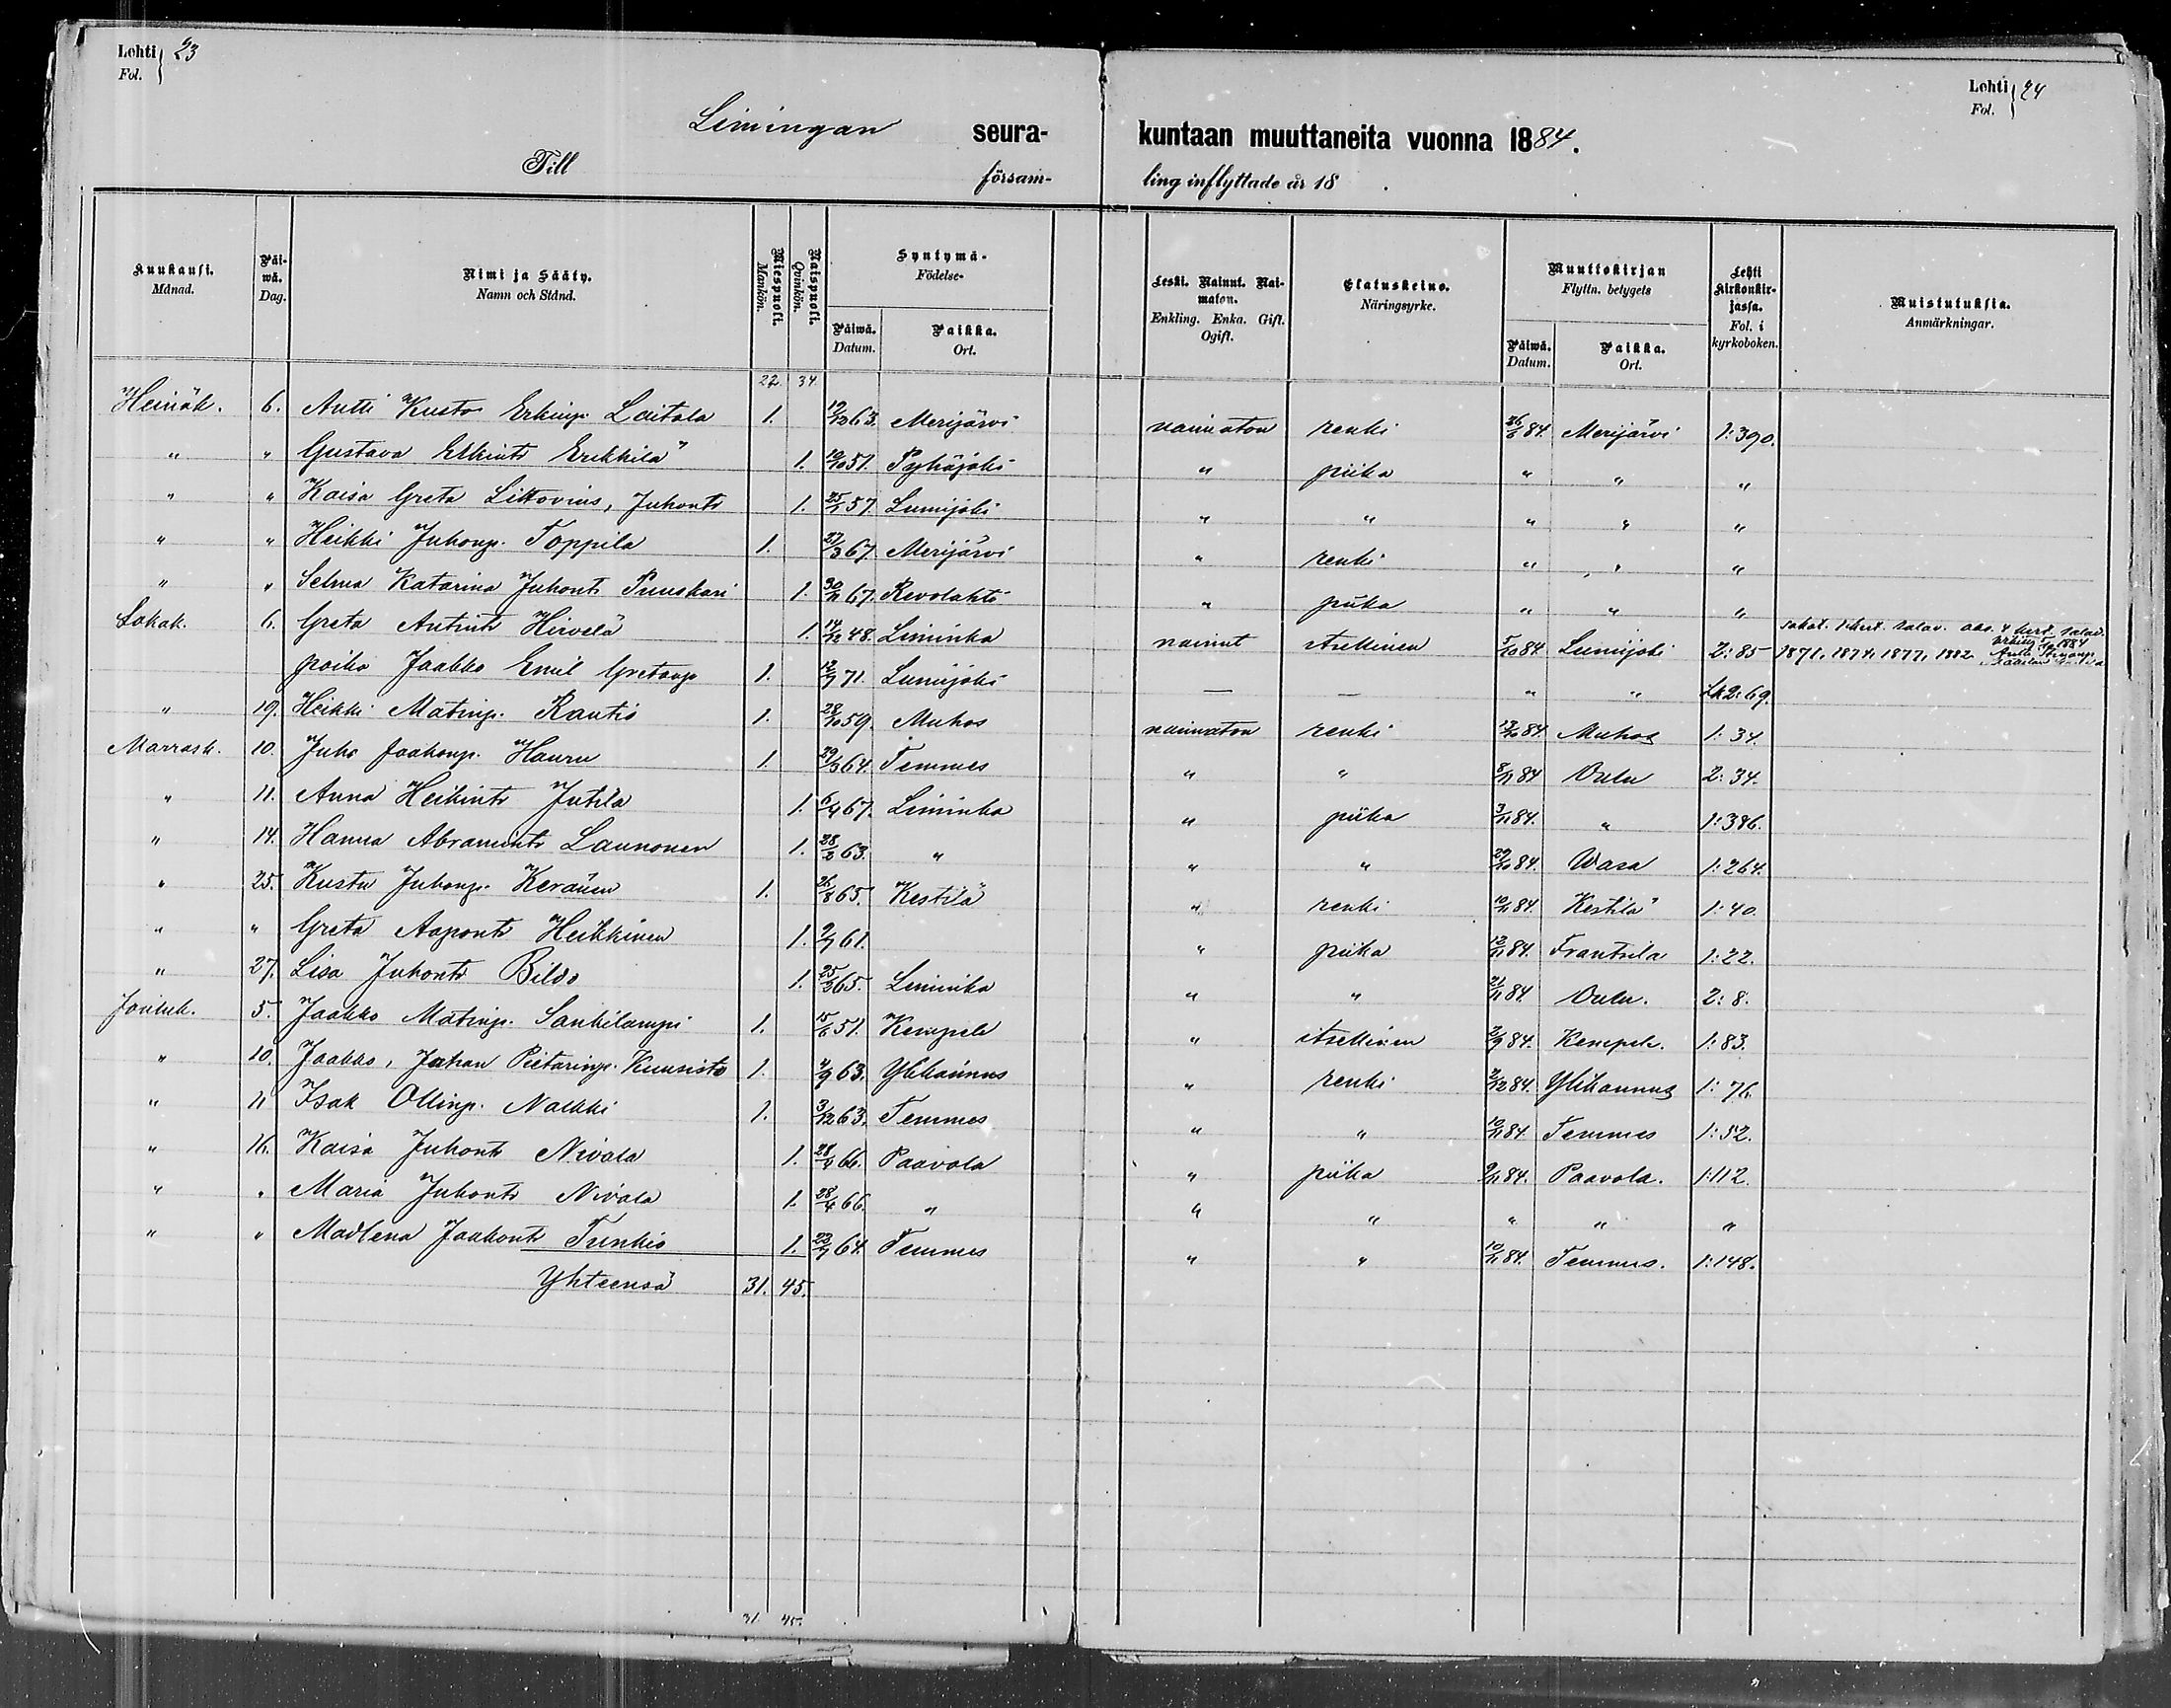 Lehti Fol. } 23
Lehti Fol. } 24
Limingan seurakuntaan muuttaneita vuonna 1884.
Till församling inflyttade år 18 .
Kuukausi. Månad. | Päiwä. Dag. | Nimi ja Sääty. Namn och Stånd. | Miespuoli. Mankön. | Naispuoli. Qvinkön. | Syntymä- Födelse- Päiwä. Datum. | Paikka. Ort. | Leski. Nainut. Naimaton. Enkling. Enka. Gift. Ogift. | Elatuskeino. Näringsyrke. | Muuttokirjan Flyttn. betygets Päiwä. Datum. | Paikka. Ort. | Lehti Kirkonkirjassa. Fol. i kyrkoboken. | Muistutuksia. Anmärkningar.
22. 34.
Heinäk. 6. Antti Kusto Erkinp. Laitala 1. 19/12 63. Merijärvi naimaton renki 26/6 84. Merijärvi 1:390.
" " Gustava Elkints Erkkilä 1. 19/10 51. Pyhäjoki " piika " " "
" " Kaisa Greta Littovius, Juhonts 1. 25/1 57. Lumijoki " " " " "
" " Heikki Juhonp. Toppila 1. 27/3 67. Merijärvi " renki " " "
" " Selma Katarina Juhonts Puuskari 1. 30/11 67. Revolahti " piika " " "
Lokak. 6. Greta Antints Hirvelä 1. 14/12 48. Liminka nainut itsellinen 5/10 84. Lumijoki 2:85 1871, 1874, 1877, 1882
poika Jaakko Emil Gretanp 1. 12/7 71. Lumijoki — — " " Lk 2:69.
" 19. Heikki Matinp. Rautio 1. 28/10 59. Muhos naimaton renki 12/10 84. Muhos 1:34.
Marrask. 10. Juho Jaakonp. Hauru 1. 29/3 64. Temmes " " 8/11 84 Oulu 2:34.
" 11. Anna Heikints Jutila 1. 6/4 67. Liminka " piika 3/11 84. " 1:386.
" 14. Hanna Abramints Launonen 1. 28/2 63. " " " 29/10 84. Wasa 1:264.
" 25. Kustu Juhonp. Keränen 1. 26/8 65. Kestilä " renki 10/11 84. Kestilä 1:40.
" " Greta Aaponts Heikkinen 1. 9/7 61. " piika 12/11 84. Frantsila 1:22.
" 27. Lisa Juhonts Bildo 1. 25/2 65. Liminka " " 21/11 84. Oulu. 2:8.
Jouluk. 5. Jaakko Matinp. Sankilampi 1. 15/6 51. Kempele " itsellinen 2/9 84. Kempele. 1:83.
" 10. Jaakko, Juhan Pietarinp. Kuusisto 1. 4/9 63. Ylikannus " renki 2/12 84. Ylikannus 1:76.
" 11 Isak Ollinp. Nalkki 1. 3/12 63. Temmes " " 10/11 84. Temmes 1:52.
" 16. Kaisa Juhonts Nivala 1. 28/4 66. Paavola " piika 9/11 84. Paavola. 1:112.
" " Maria Juhonts Nivala 1. 28/4 66. " " " " " "
" " Madlena Jaakonts Tunkio 1. 22/7 64. Temmes " " 10/11 84. Temmes. 1:148.
Yhteensä 31. 45.
31. 45.